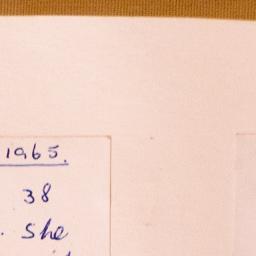 1965.
38
. She